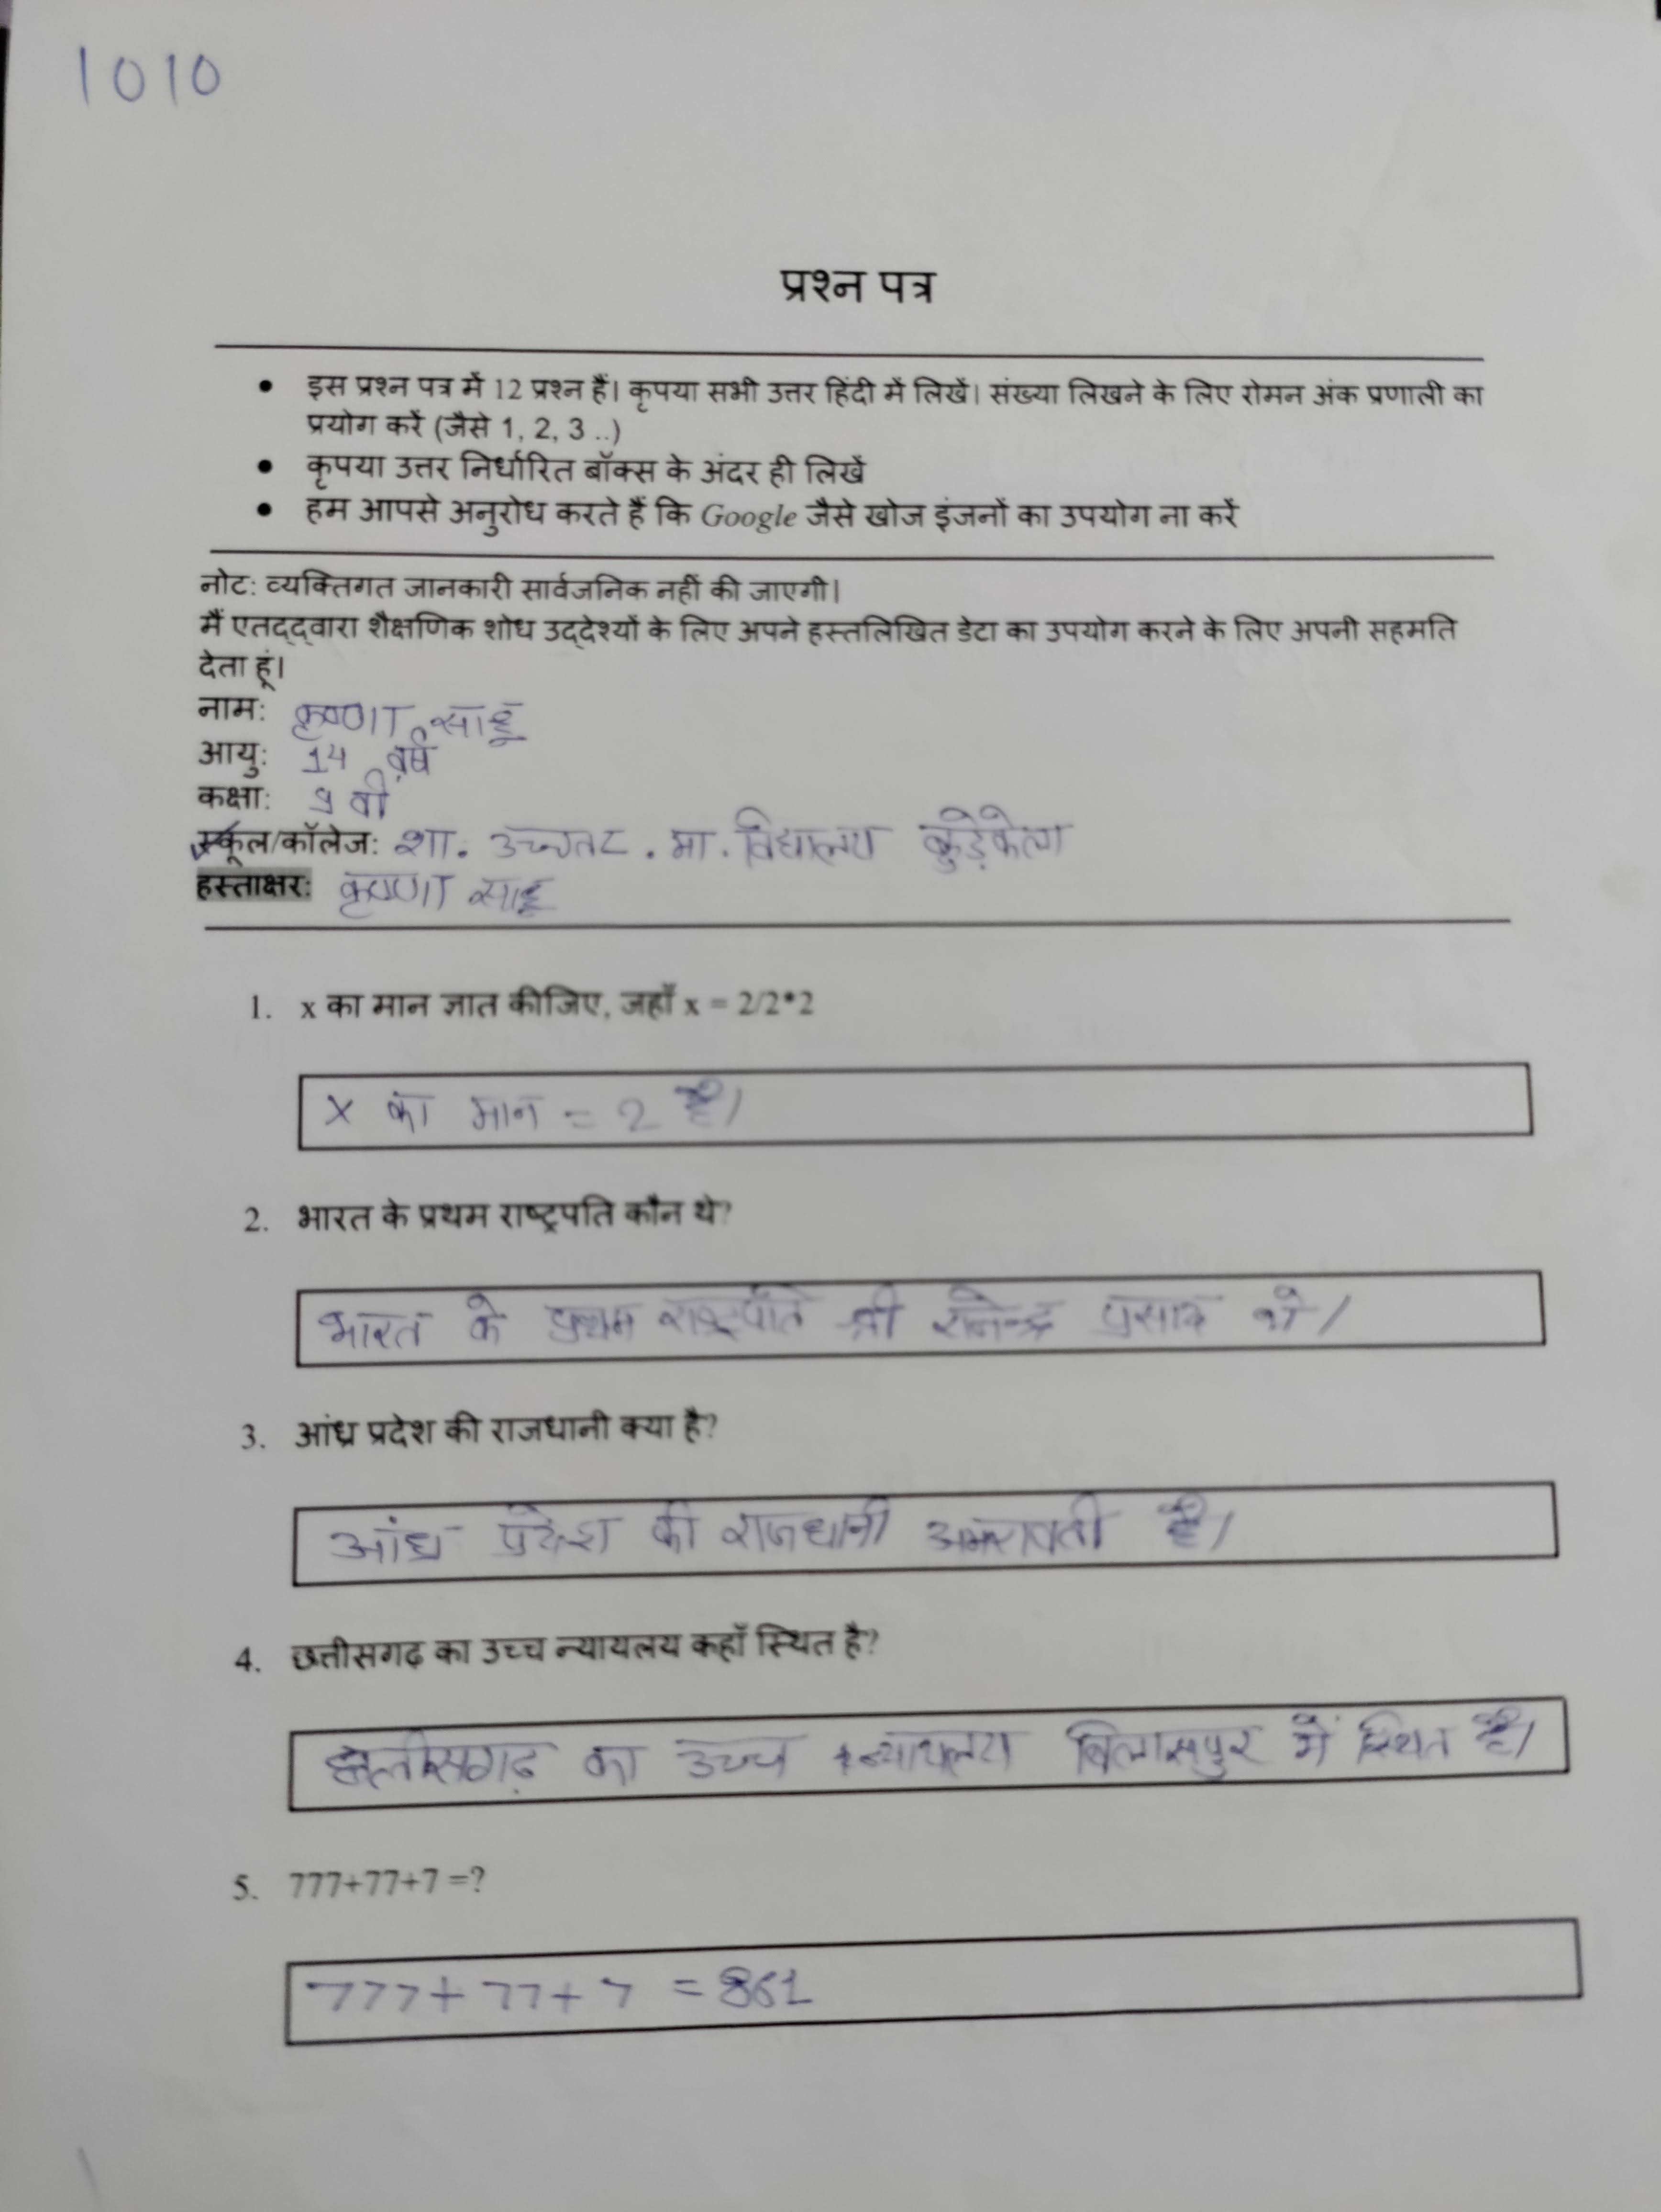 1010
प्रश्न पत्र
• इस प्रश्न पत्र में 12 प्रश्न हैं। कृपया सभी उत्तर हिंदी में लिखें। संख्या लिखने के लिए रोमन अंक प्रणाली का
प्रयोग करें (जैसे 1, 2, 3 ..)
• कृपया उत्तर निर्धारित बॉक्स के अंदर ही लिखें
• हम आपसे अनुरोध करते हैं कि Google जैसे खोज इंजनों का उपयोग ना करें
नोट: व्यक्तिगत जानकारी सार्वजनिक नहीं की जाएगी।
मैं एतद्द्वारा शैक्षणिक शोध उद्देश्यों के लिए अपने हस्तलिखित डेटा का उपयोग करने के लिए अपनी सहमति
देता हूं।
नाम: कृष्णा साहू
आयु: 14 वर्ष
कक्षा: 9 वी
स्कूल/कॉलेज: शा. उच्चतर . मा . विद्यालय कुड़ेकेला
हस्ताक्षर: कृष्णा साहू
1. x का मान ज्ञात कीजिए, जहाँ x = 2/2*2
x का मान = 2 है।
2. भारत के प्रथम राष्ट्रपति कौन थे?
भारत के प्रथम राष्ट्रपति श्री राजेन्द्र प्रसाद थे।
3. आंध्र प्रदेश की राजधानी क्या है?
आंध्र प्रदेश की राजधानी अमरावती है।
4. छत्तीसगढ़ का उच्च न्यायलय कहाँ स्थित है?
छत्तीसगढ़ का उच्च न्यायालय बिलासपुर में स्थित है।
5. 777+77+7 =?
777+ 77+ 7 = 861